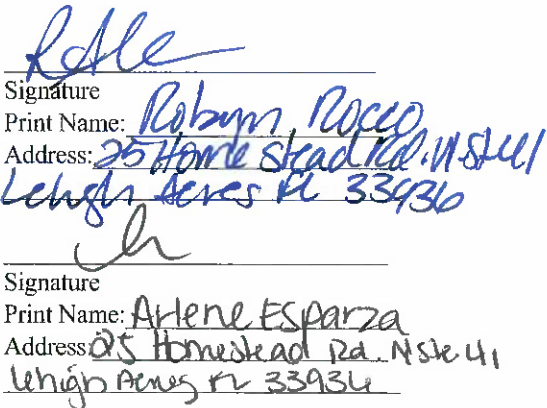 Signature
Print Name: Robyn Rocco
Address: 25 Homestead Rd. N Ste 41
Lehigh Acres FL 33936
Signature
Print Name: Arlene Esparza
Address: 25 Homestead Rd. N Ste 41
Lehigh Acres FL 33936